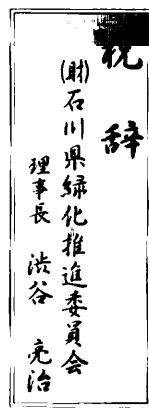 祝辞
(財)石川県緑化推進委員会
理事長 渋谷 亮治